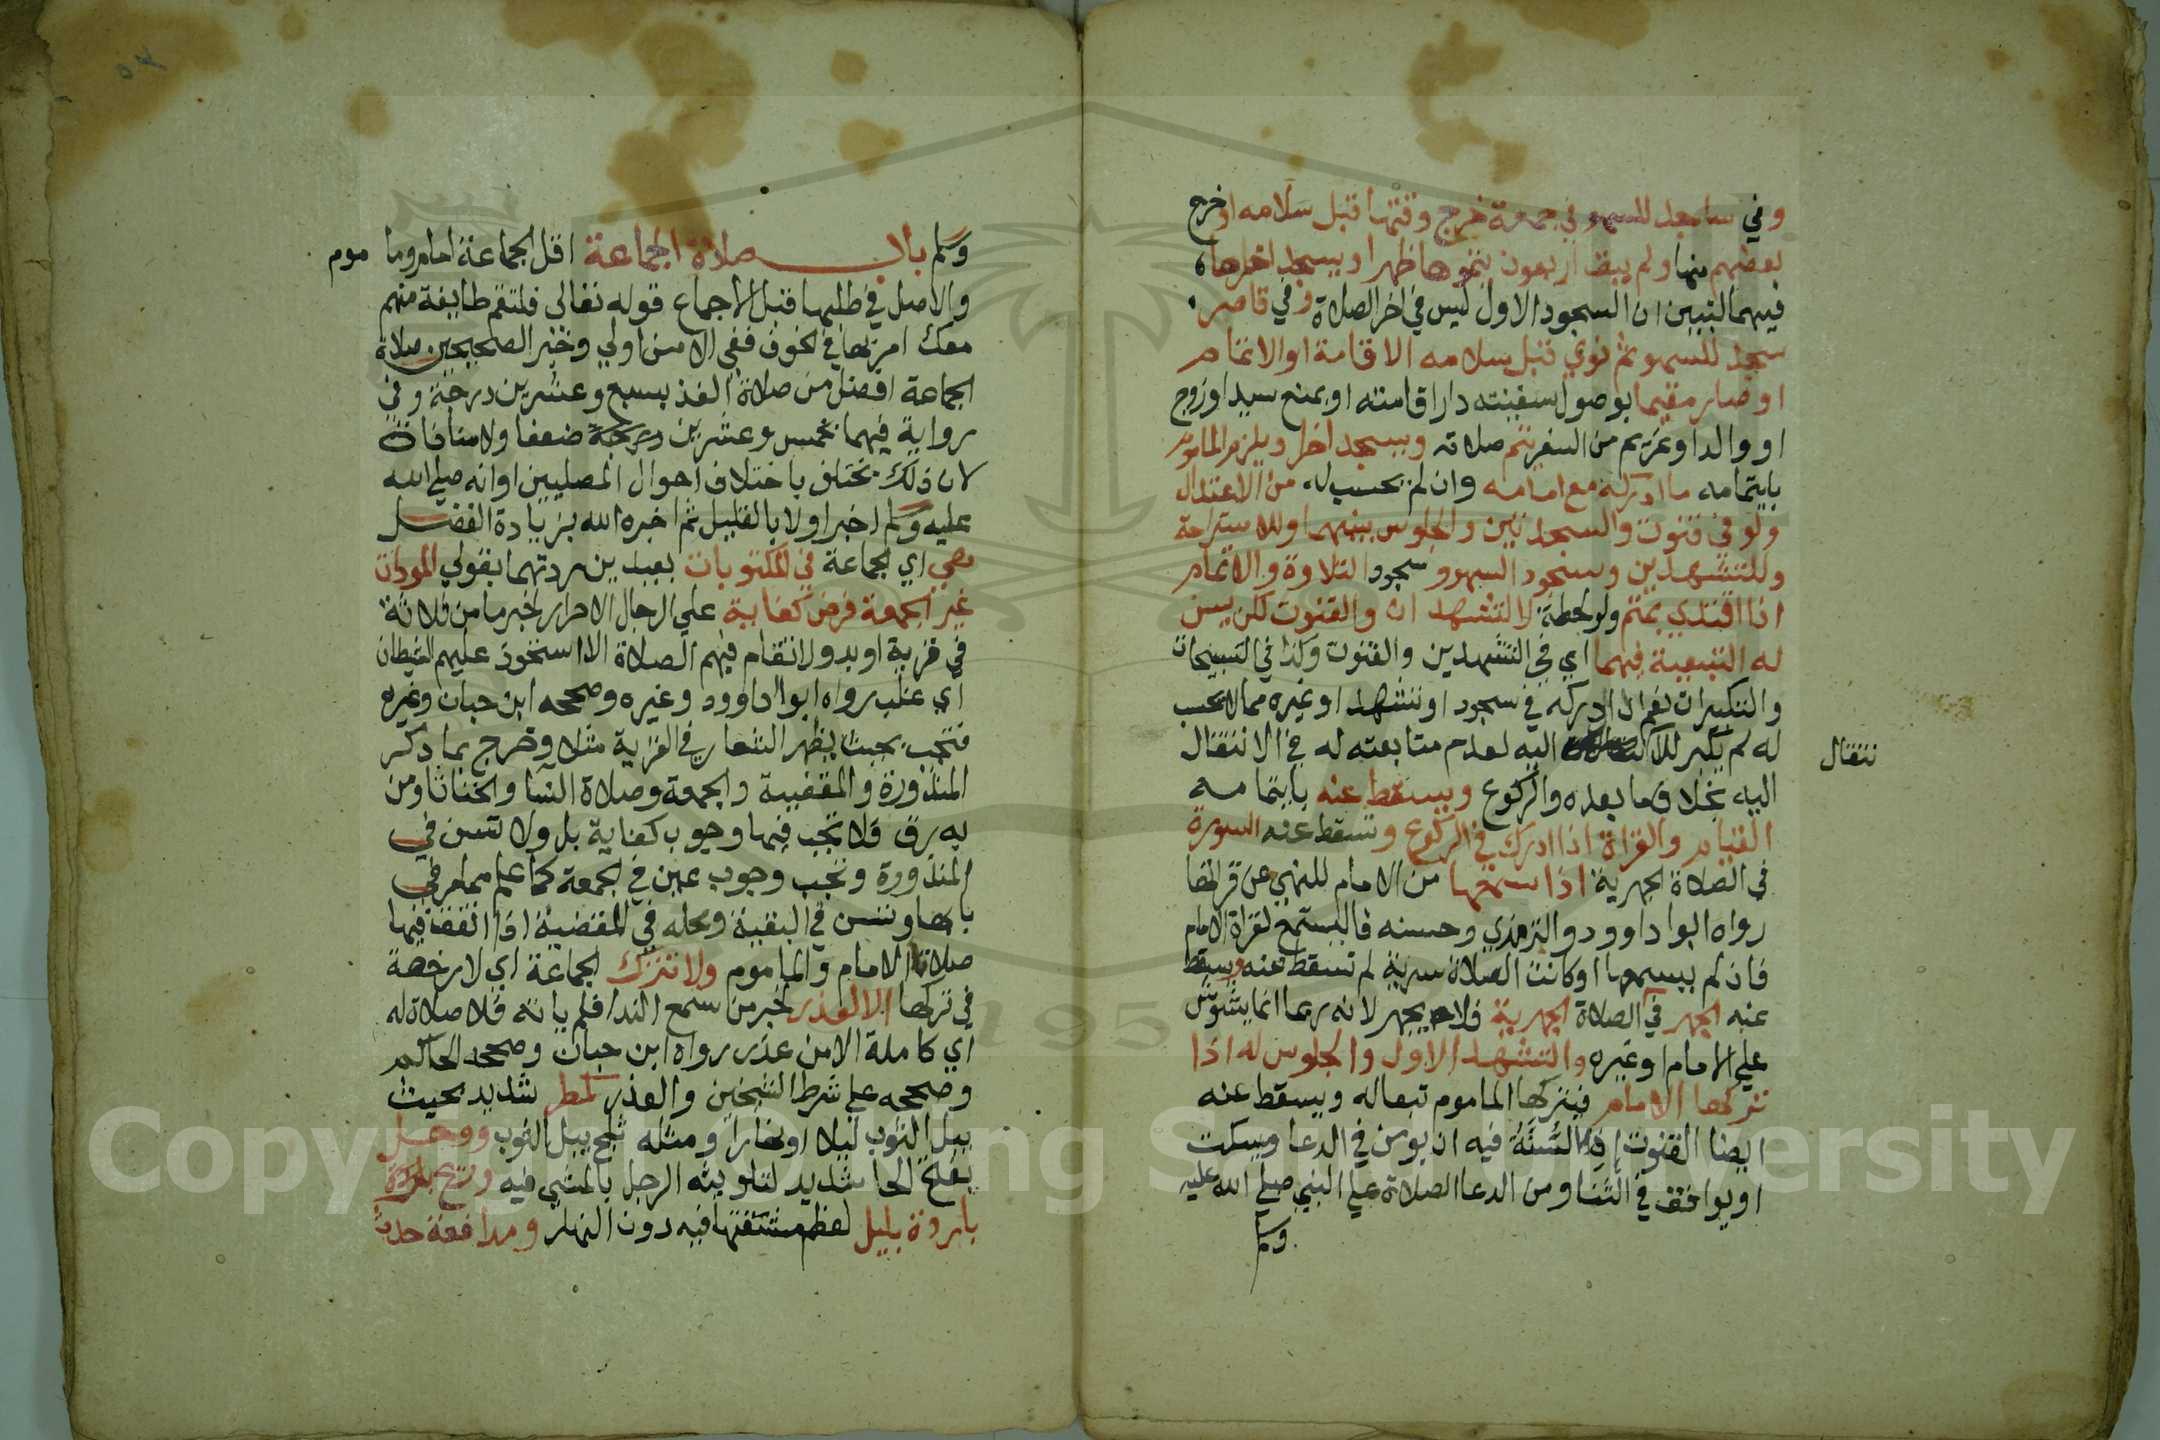 وفي ساجد للسهو في جمعة خرج وقتها قبل سلامه او خرج
بعضهم منها ولم يبق اربعون يتموها ظهرا ويسجد اخرها
فيهما لتبين ان السجود الاول ليس في اخر الصلاة وفي قاصر
سجد للسهو ثم نوي قبل سلامه الاقامة او الاتمام
او صار مقيما بوصول سفينته دار اقامته او بمنع سيد او زوج
او والد او غريم من السفر يتم صلاته ويسجد اخرا ويلزم الماموم
بايتمامه ما ادركه مع امامه وان لم يحسب له من الاعتدال
ولو في قنوت والسجدتين والجلوس بينهما وللاستراحة
وللتشهدين وسجود السهو وسجود التلاوة والاتمام
اذا اقتدي بمتم ولو لحظة لا التشهد ان والقنوت لكن يسن
له التبعية فيهما اي في التشهدين والقنوت وكذا في التسبيحات
والتكبيرات نعم ان ادركه في سجود او تشهد او غيره مما لا يحسب
له لم يكبر للا اليه لعدم متابعته له في الانتقال
نتقال
اليه بخلاف ما بعده والركوع ويسقط عنه بايتمامه
القيام والقراة اذا ادركه في الركوع وتسقط عنه السورة
في الصلاة الجهرية اذا سمعها من الامام للنهي عن قراتها
رواه ابوا داوود والترمذي وحسنه فاليستمع لقراة الامام
فان لم يسمعها او كانت الصلاة سرية لم تسقط عنه ويسقط
عنه الجهر في الصلاة الجهرية فلا يجهر لانه ربما انما يشوش
علي الامام او غيره والتشهد الاول والجلوس له اذا
تركها الامام فيتركها الماموم تبعا له ويسقط عنه
ايضا القنوت اذ السنة فيه ان يومن في الدعا ويسكت
او يوافق في الثنا ومن الدعا الصلاة علي النبي صلي الله عليه
وسلم
وسلم باب صلاة الجماعة اقل الجماعة امام وما موم
والاصل في طلبها قبل الاجماع قوله تعالى فلتقم طايفة منهم
معك امر بها في الخوف ففي الامن اولي وخبر الصحيحين صلاة
الجماعة افضل من صلاة الفذ بسبع وعشرين درجة وفي
رواية فيهما بخمس وعشرين درجة ضعفا ولا منافاة
لان ذلك يختلف باختلاف احوال المصليين او انه صلي الله
عليه وسلم اخبر اولا بالقليل ثم اخبره الله بزيادة الفضل
هي اي الجماعة في المكتوبات بعيدين ردتهما بقولي المودات
غير الجمعة فرض كفاية علي الرجال الاحرار لخبر ما من ثلاثة
في قرية او بدو لا تقام فيهم الصلاة الا استحوذ عليهم الشيطان
اي غلب رواه ابوا داوود وغيره وصححه ابن حبان وغيره
فتجب بحيث يظهر الشعار في القرية مثلا وخرج بما ذكر
المنذورة والمقضية والجمعة وصلاة النسا والخناثا ومن
به رق فلا تجب فيها وجوب كفاية بل ولا تسن في
المنذورة وتجب وجوب عين في الجمعة كما علم مما مر في
بابها وتسن في البقية ومحله في المقضية اذا اتفقت فيها
صلاة الامام والماموم ولا تترك الجماعة اي لا رخصة
في تركها الا لعذر لخبر من سمع الندا فلم ياته فلا صلاة له
اي كاملة الا من عذر رواه ابن حبان وصححه الحاكم
وصححه علي شرط الشيخين والعذر كمطر شديد بحيث
يبل الثوب ليلا او نهارا ومثله ثلج يبل الثوب ووحل
بفتح الحا شديد لتلويثه الرجل بالمشي فيه وريح باردة
باردة بليل لعظم مشقتها فيه دون النهار ومدافعة حدث